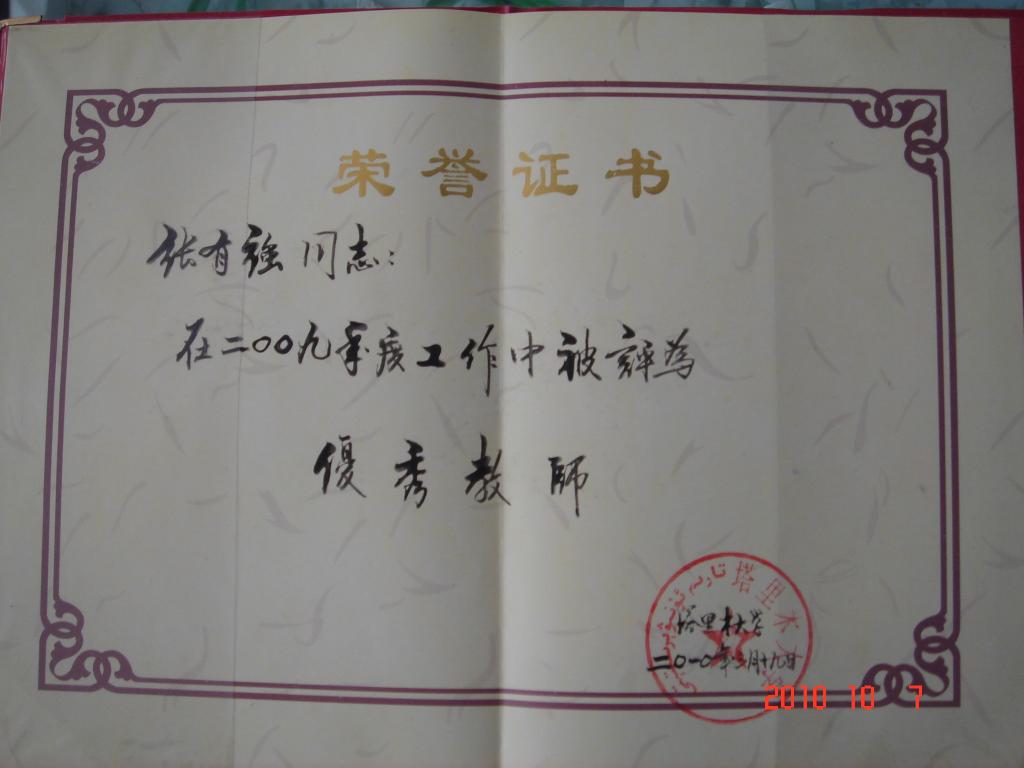 荣誉证书
张有强同志:
在二〇〇九年度工作中被評為
優秀教師
塔里木大学
塔里木大学
二〇一〇年三月十九日
2010 10 7